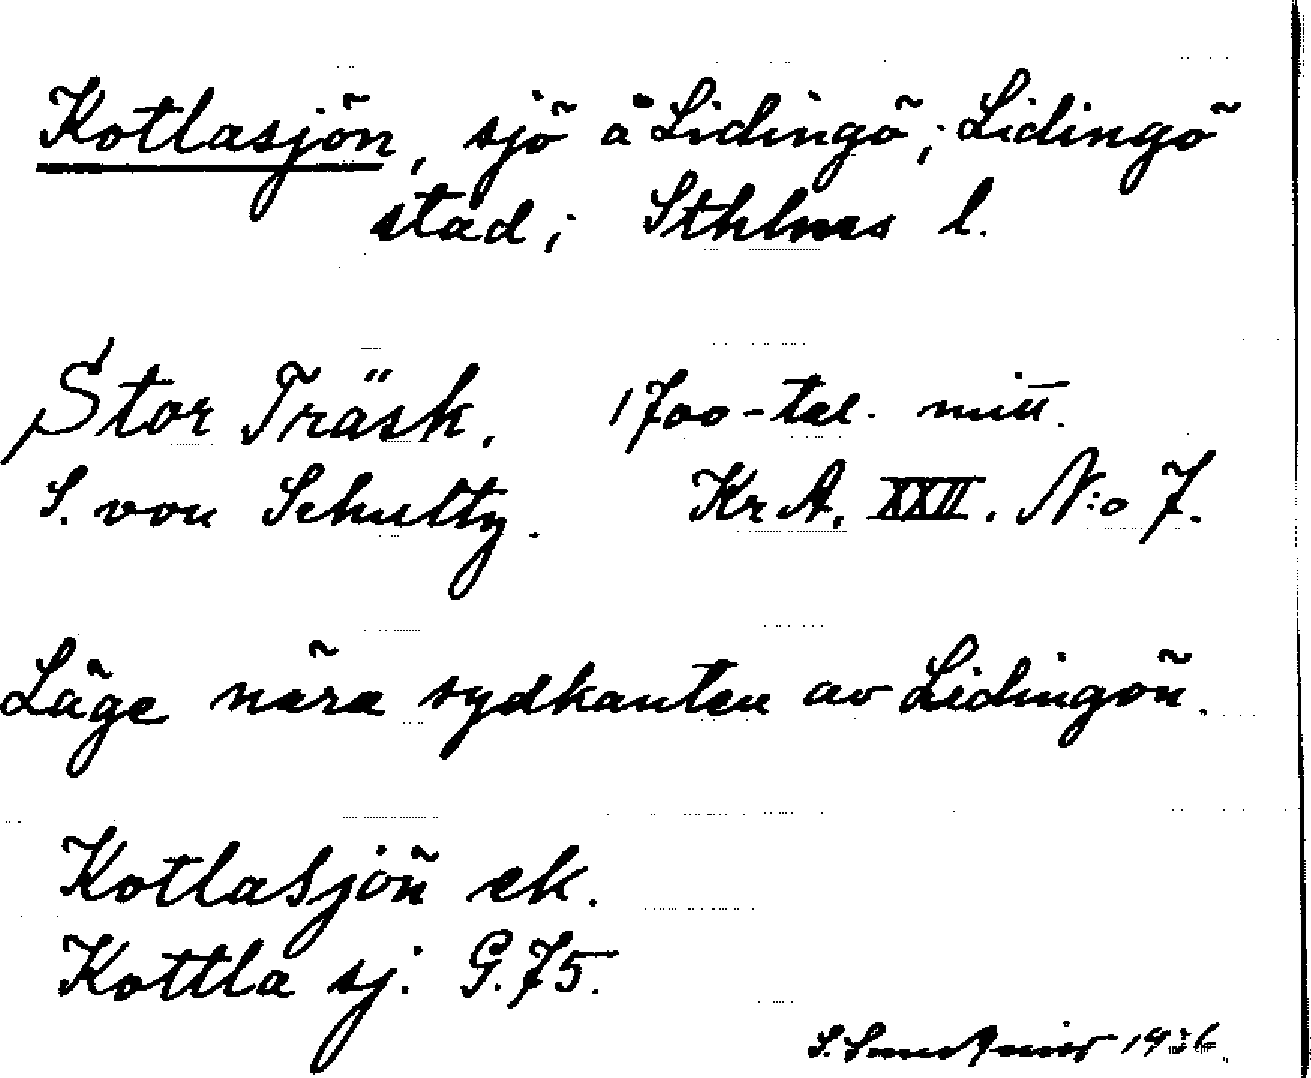 Kotlasjön, sjö å Lidingö, Lidingö
stad; Sthlms l.
Stor Träsk. 1700-tal. mitt.
S. von Schultz. Kr A. XXII. N:o 7.
Läge nära sydkanten av Lidingön.
Kotlasjön ek.
Kottla sj. G.75.
S. 1936.